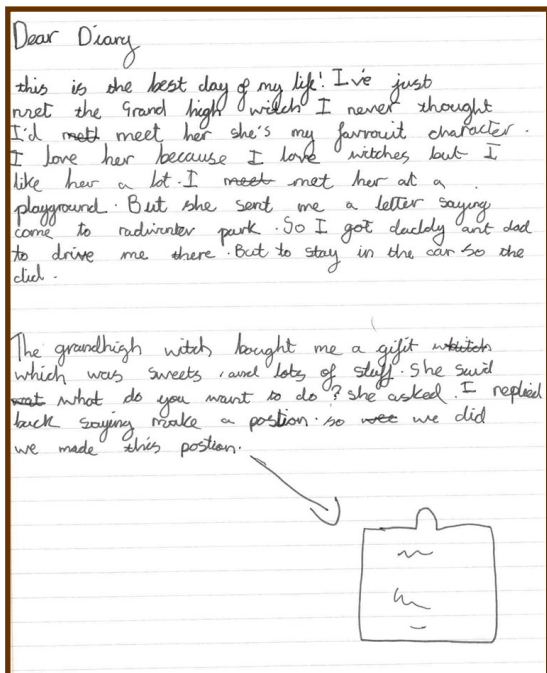 Dear Diary
this is the best day of my life! I've just
met the Grand high witch I never thought
I'd mett meet her she's my favrouit character.
I love her because I love witches but I
like her a lot. I meet met her at a
playground. But she sent me a letter saying
come to park. So I got daddy ant dad
to drive me there. But to stay in the car so the
did.
The grandhigh witch bought me a gifit
which was sweets, and lots of stuff. She said
wat what do you want to do? she asked. I replied
back saying make a postion. so wee we did
we made this postion.